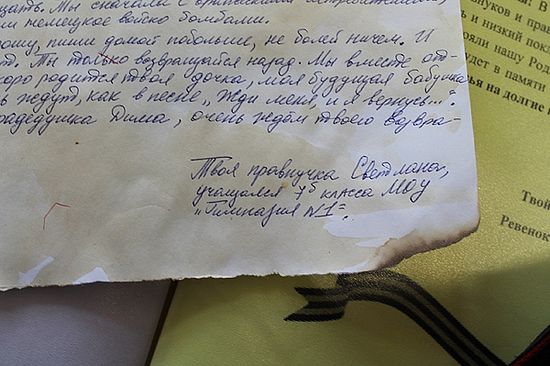 щать. Мы сначала с британскими истребителями,
ли немецкое войско бомбами.
рошу, пиши домой побольше, не болей ничем. И
т. Ты только возвращайся назад. Мы вместе от-
коро родится твоя дочка, моя будущая бабушка
ь ждут, как в песне „Жди меня, и я вернусь...".
радедушка Дима, очень ждём твоего возвра-
Твоя правнучка Светлана,
учащаяся 7Б класса МОУ
„Гимназия №1".
нуков и прав
ь и низкий покл
ояли нашу Род
удет в памяти
на долгие
Твой
Ревенок